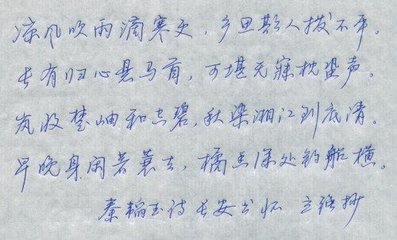 凉风吹雨滴寒更,乡思欺人拨不平。
长有归心悬马首,可堪无寐枕蛩声。
岚收楚岫和空碧,秋染湘江到底清。
早晚身闲着蓑去,橘香深处钓船横。
秦韬玉诗 长安书怀 抄